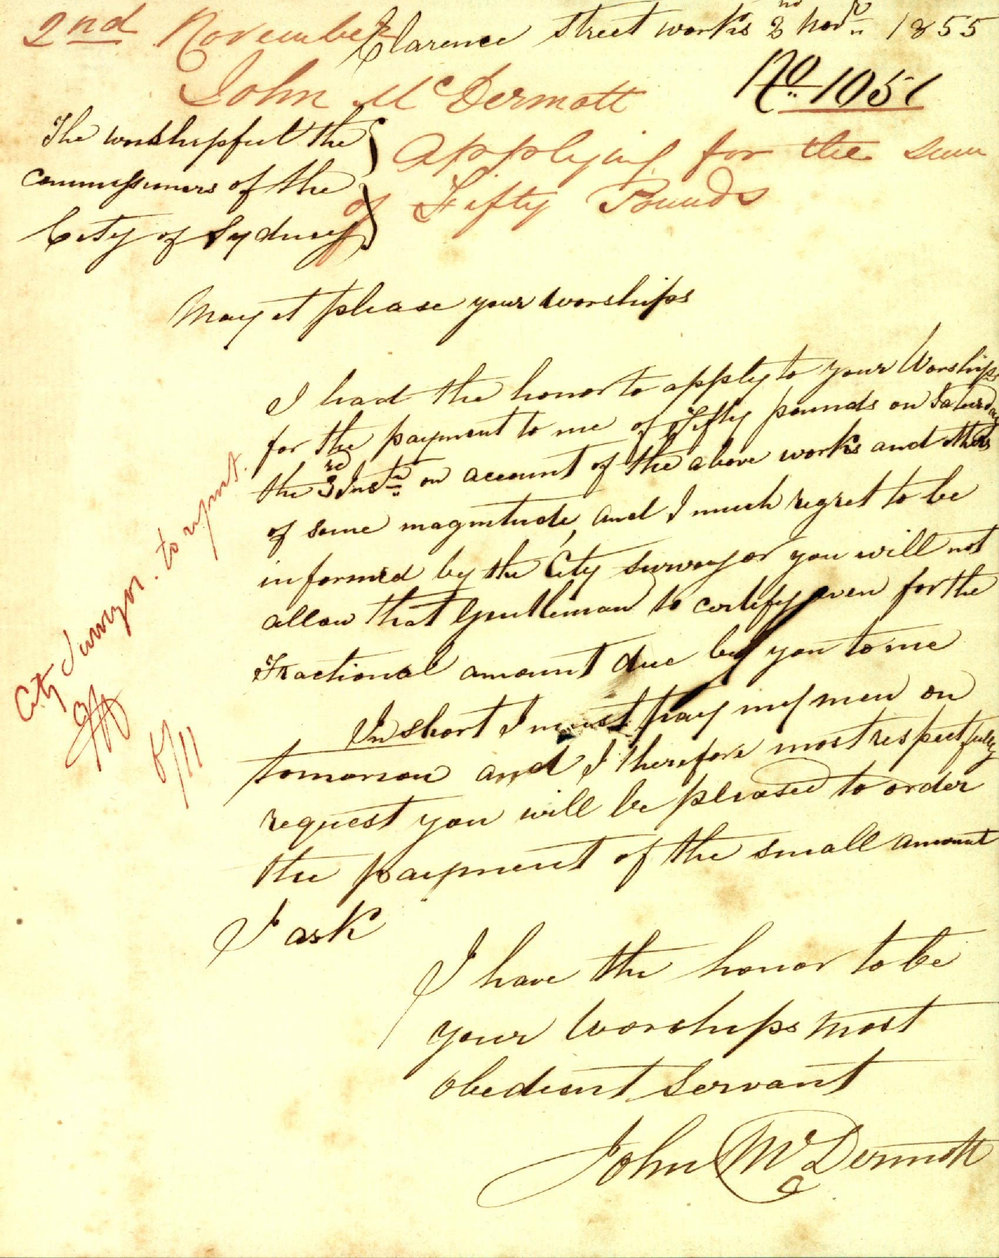 2nd November
Clarence Street works 2nd Novr. 1855
John McDermott
No. 1051
Applying for the sum
of Fifty Pounds
The worshipful the
Commissioners of the
City of Sydney
May it please your Worships
I had the honor to apply to your Worships
for the payment to me of Fifty pounds on Saturday
the 3rd Inst. on account of the above works and others
of some magnitude, and I much regret to be
informed by the City Surveyor you will not
allow that Gentleman to certify even for the
Fractional amount due by you to me
In short I must pay my men on
tomorrow and I therefore most respectfully
request you will be pleased to order
the payment of the small amount
I ask
City Surveyor. to report.
6/11
I have the honor to be
your Worships most
obedient Servant
John McDermott